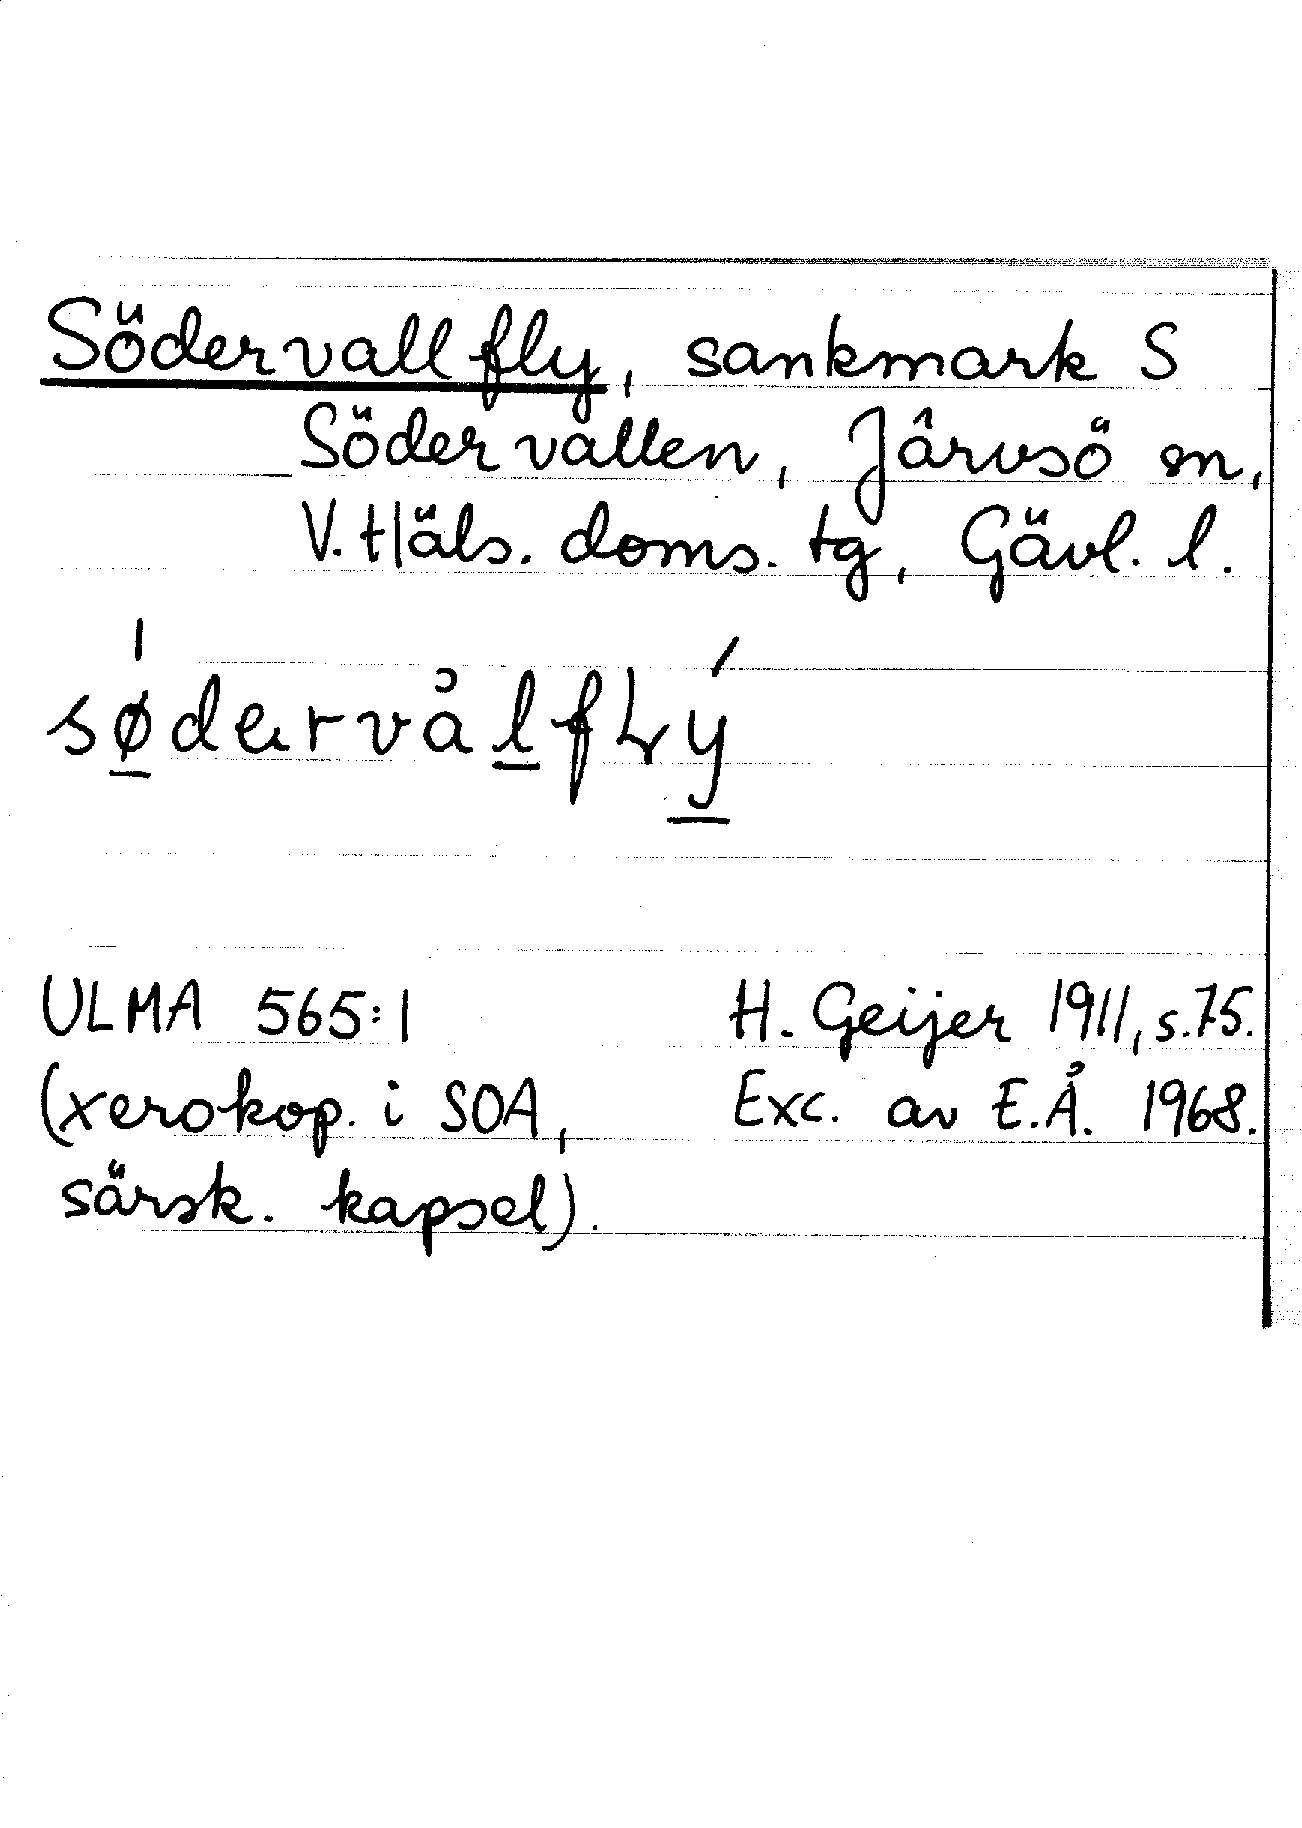 Södervallfly, sankmark S
Södervallen, Järvsö sn,
V. Häls. doms. tg, Gävl. l.
ULMA 565:1 H. Geijer 1911, s. 75.
(xerokop. i SOA, Exc. av E.Å. 1968.
särsk. kapsel).